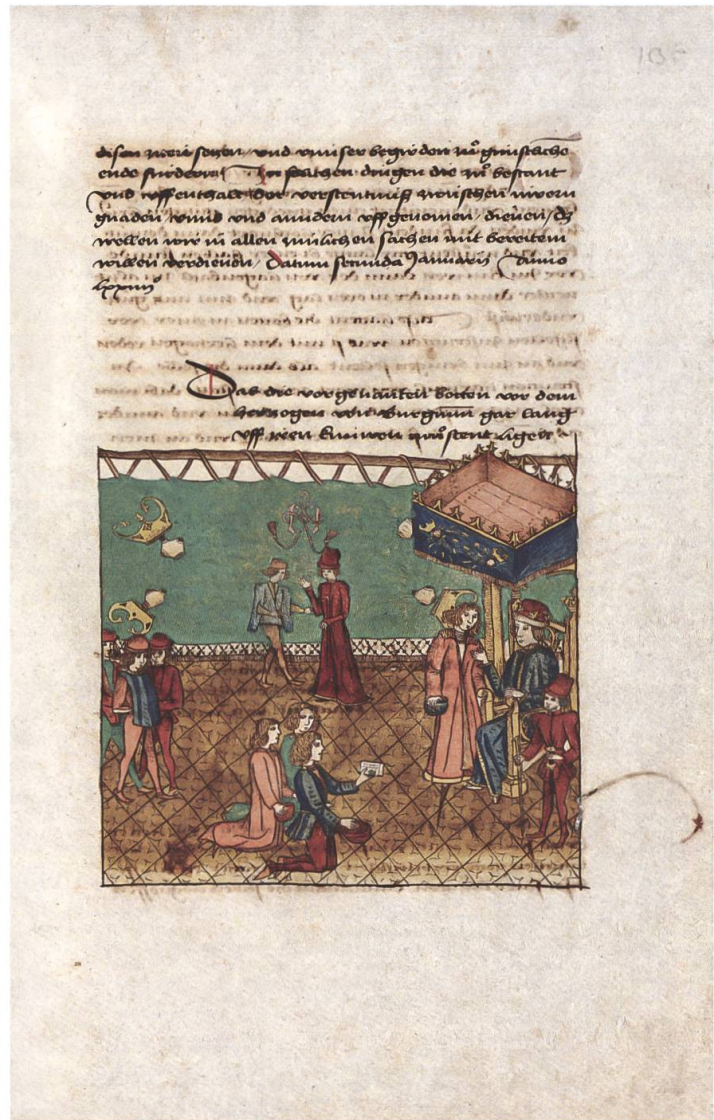 disen zweien sachen und unnser begirden zů gnustlichē
ende furdern In solichen dingen die zů bestant
und uffenthalt der verstentniß zwüschen üwern
gnaden unns und anndern uffgenomen dienen dz
wellen wir in allen müglichen sachen mit bereitem
willen verdienen Datum secunda Januarij Anno
lxxiiijͦ
Das die vorgenanten botten vor dem
hertzogen von Burgunn gar lang
uff iren knüwen můstent ligen